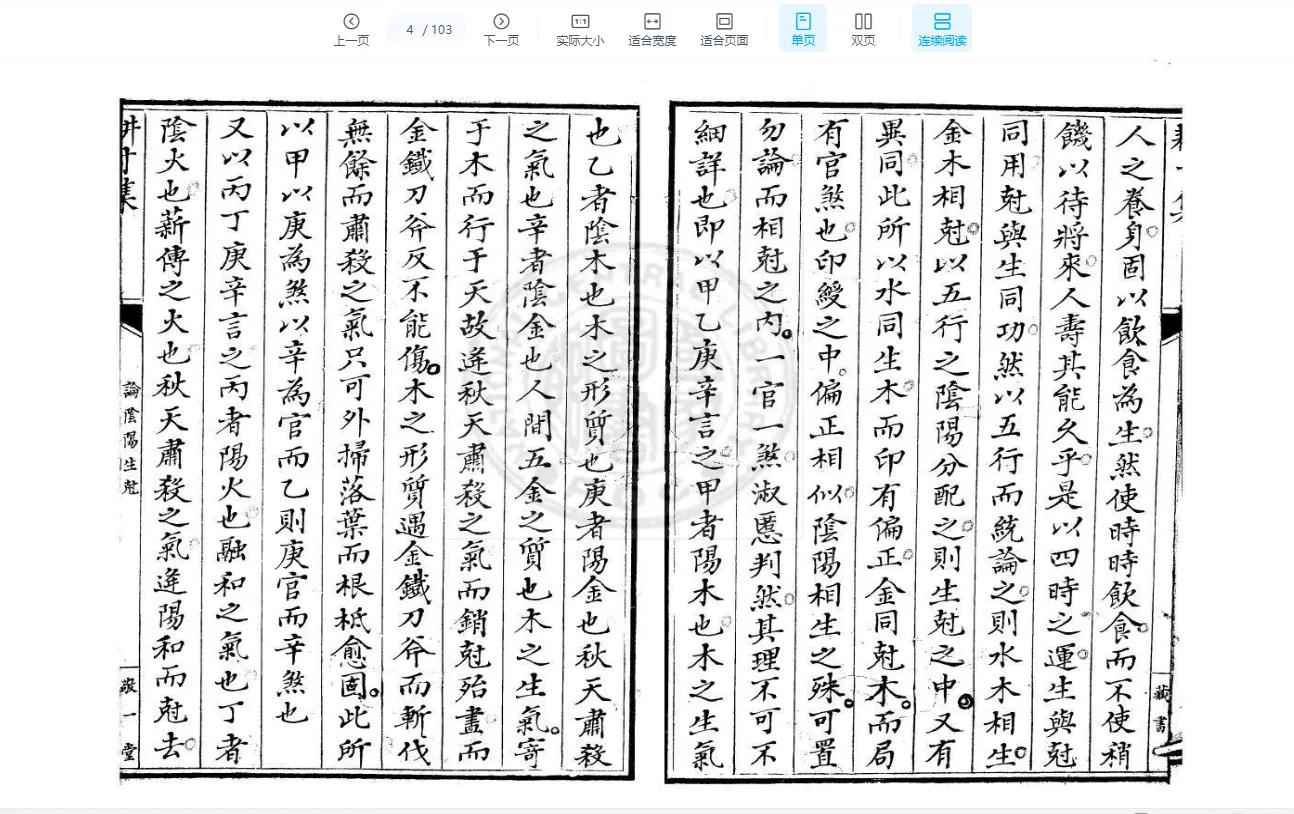 上一页
4 / 103
下一页
1:1
实际大小
适合宽度
适合页面
单页
双页
连续阅读
人之養身固以飲食為生然使時時飲食而不使稍
饑以待將來人壽其能久乎是以四時之運生與尅
同用尅與生同功然以五行而統論之則水木相生
金木相尅以五行之陰陽分配之則生尅之中又有
異同此所以水同生木而印有偏正金同尅木而局
有官煞也印綬之中偏正相似陰陽相生之殊可置
勿論而相尅之內一官一煞淑慝判然其理不可不
細詳也即以甲乙庚辛言之甲者陽木也木之生氣
藏書
也乙者陰木也木之形質也庚者陽金也秋天肅殺
之氣也辛者陰金也人間五金之質也木之生氣寄
于木而行于天故逢秋天肅殺之氣而銷尅殆盡而
金鐵刀斧反不能傷木之形質遇金鐵刀斧而斬伐
無餘而肅殺之氣只可外掃落葉而根柢愈固此所
以甲以庚為煞以辛為官而乙則庚官而辛煞也
又以丙丁庚辛言之丙者陽火也融和之氣也丁者
陰火也薪傳之火也秋天肅殺之氣逢陽和而尅去
論陰陽生尅
敬一堂